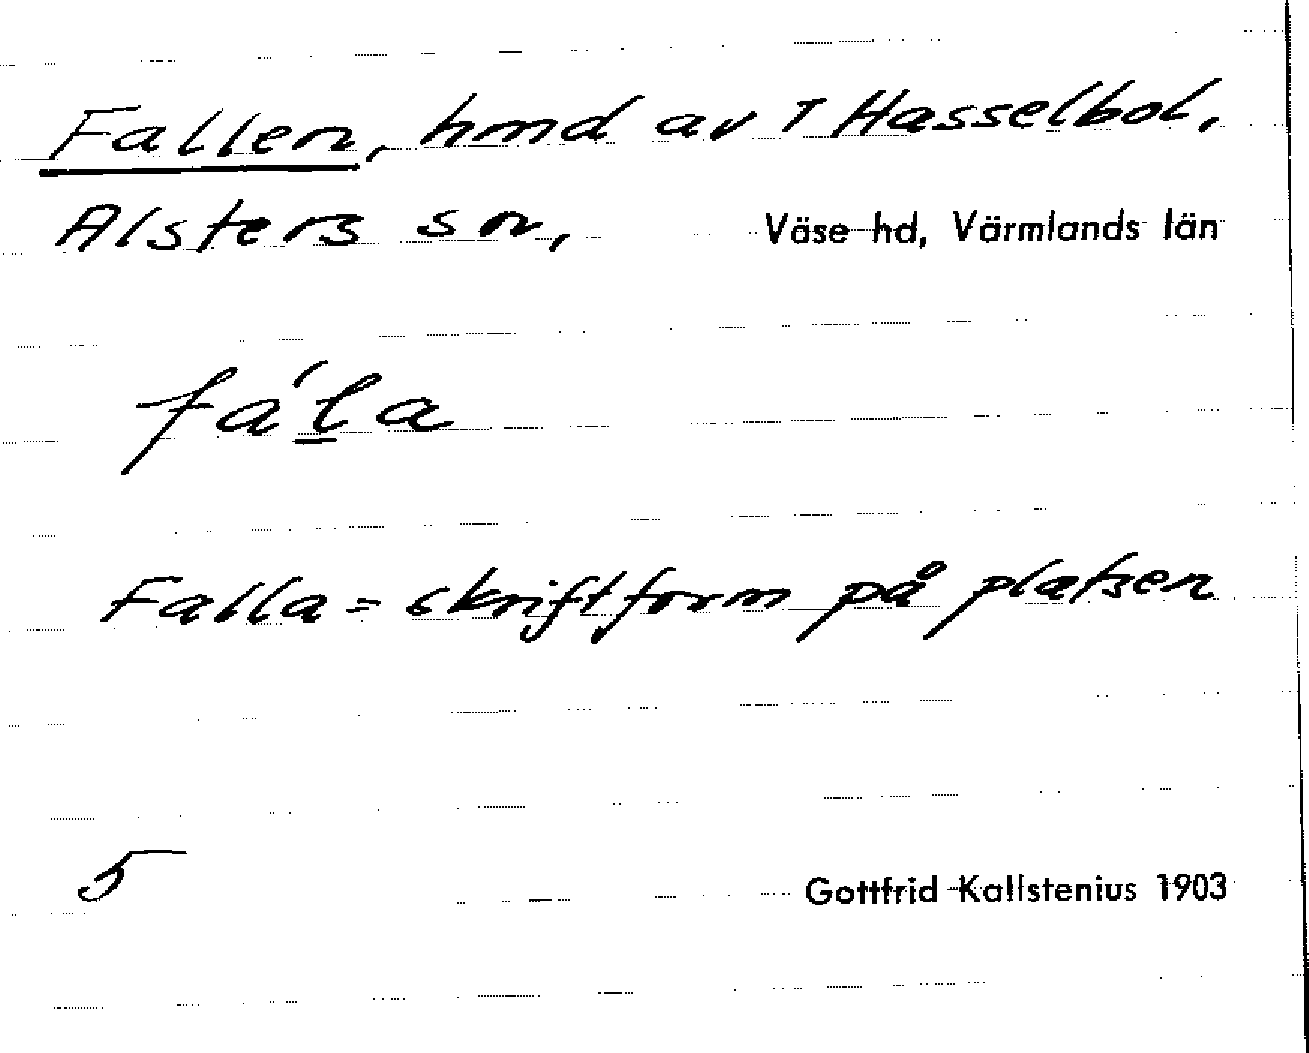 Fallen, hmd av 1 Hasselbol,
Alsters sn, Väse hd, Värmlands län
fa´l̲a
Falla = skriftform på platsen
5
Gottfrid Kallstenius 1903